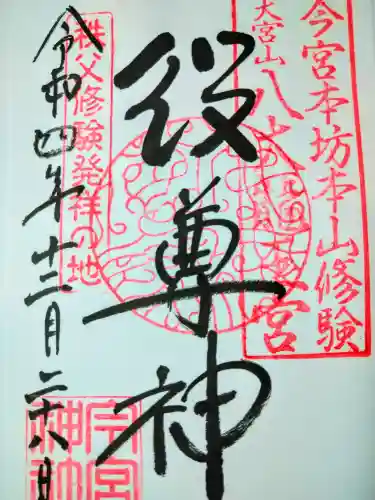 今宮本坊本山修験
大宮山
八大
宮
役尊神
秩父修験発祥の地
令和四年十二月二十八日
今宮
神社